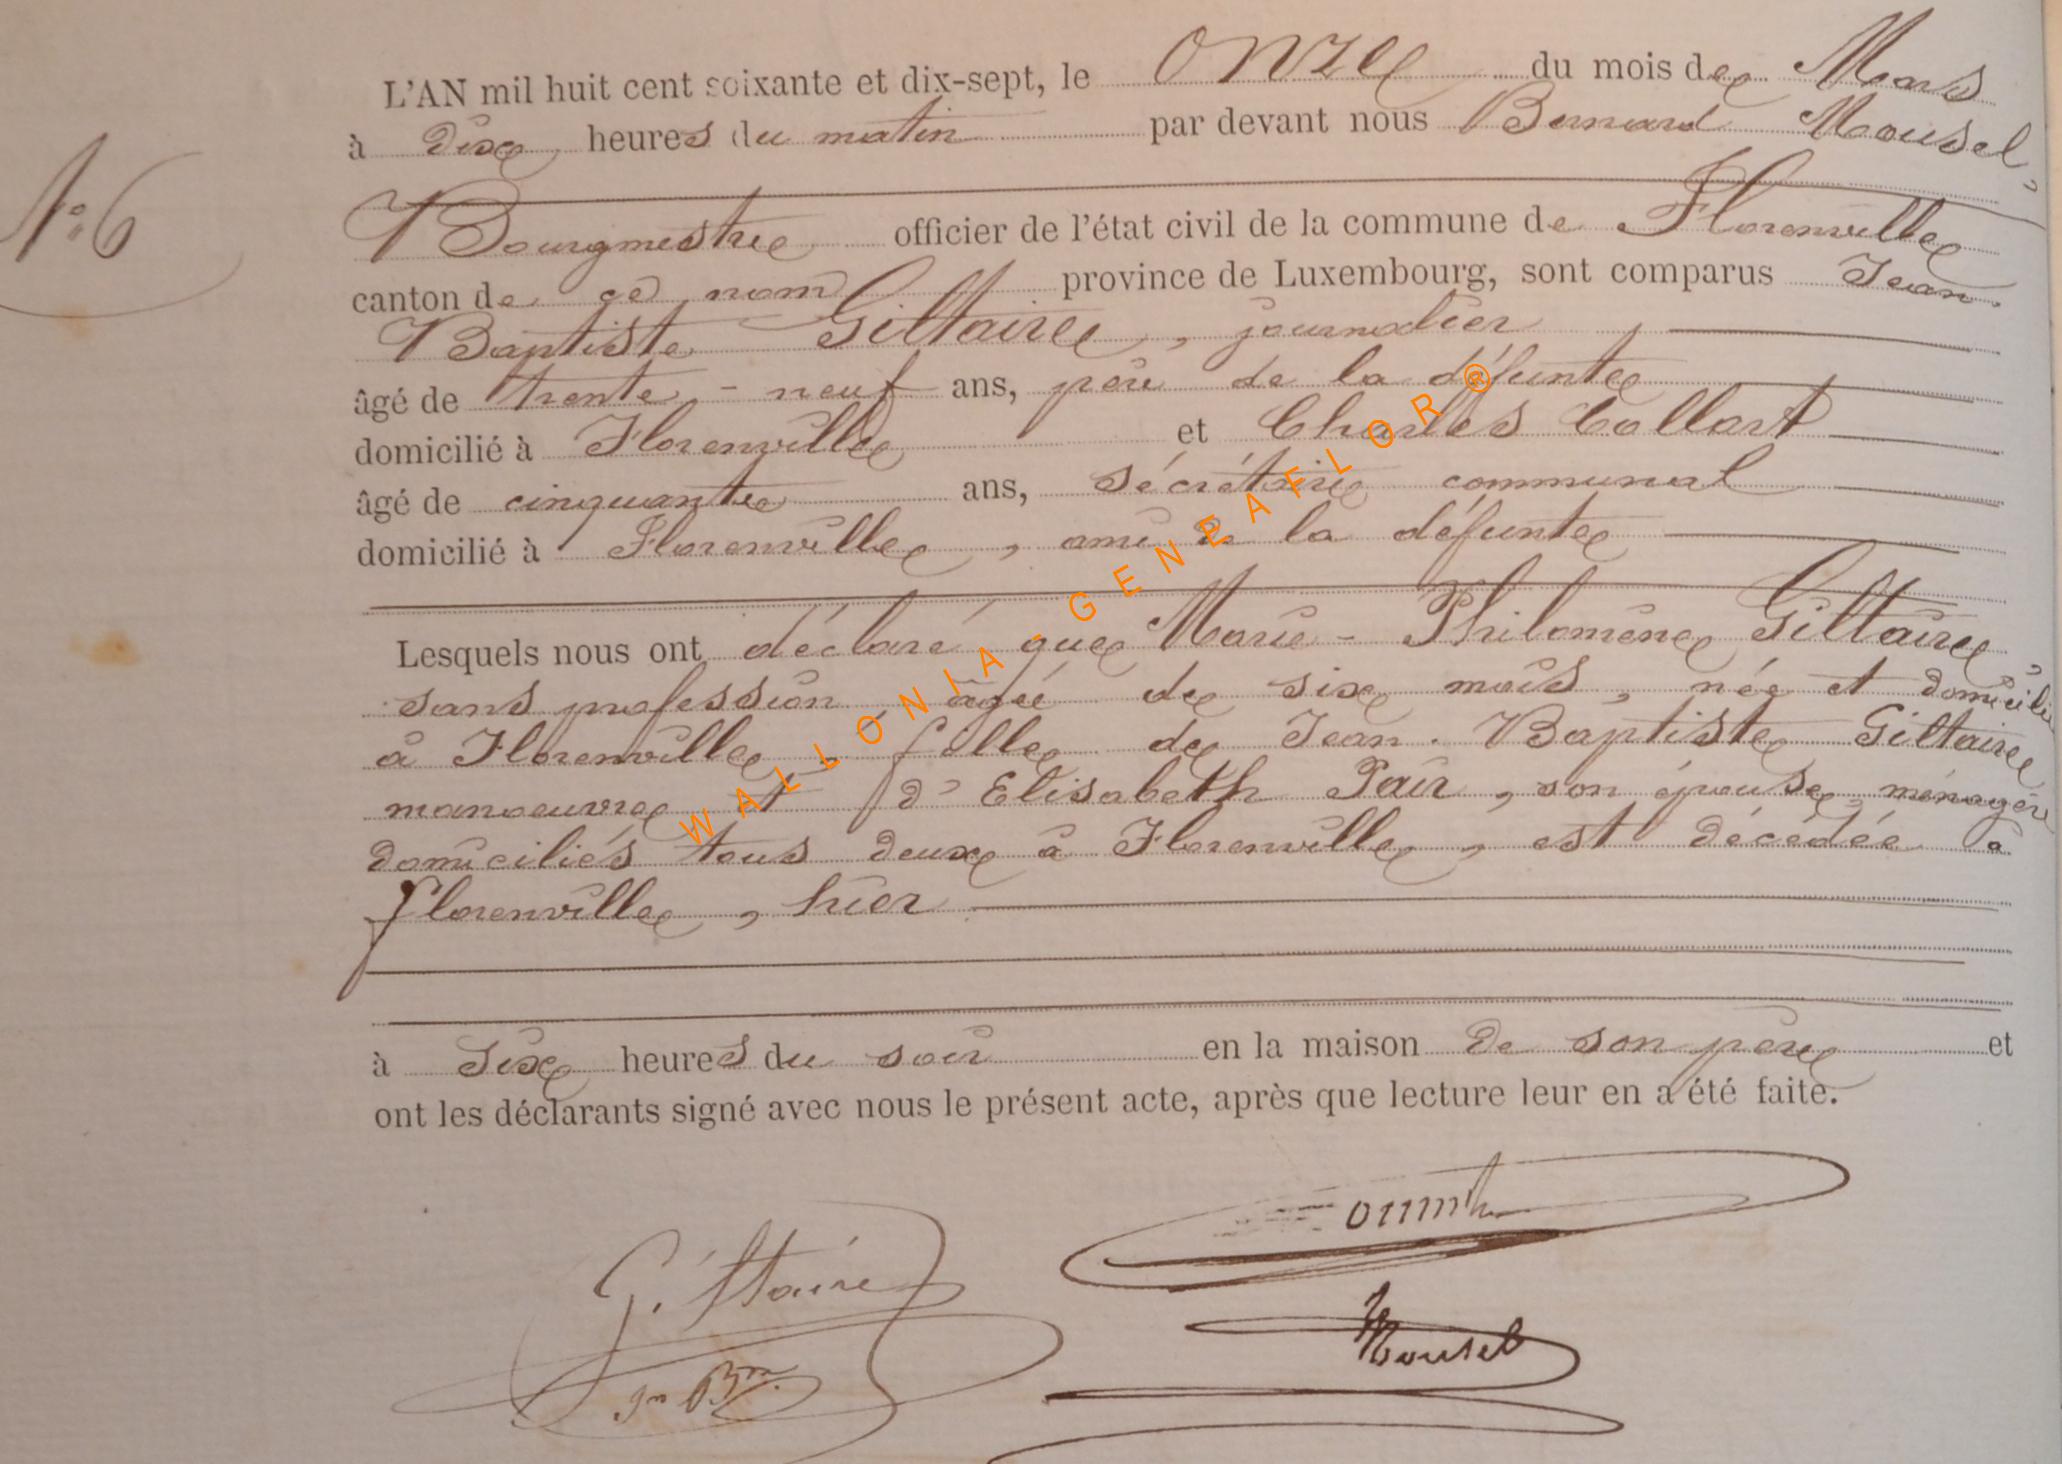 L'AN mil huit cent soixante et dix-sept, le onze du mois de Mars
à dix heures du matin par devant nous Bernard Mousel,
N° 6
Bourgmestre officier de l'état civil de la commune de Florenville
canton de ce nom province de Luxembourg, sont comparus Jean
Baptiste Giltaire, journalier,
âgé de trente-neuf ans, père de la défunte
domicilié à Florenville et Charles Collart
âgé de cinquante ans, sécrétaire communal
domicilié à Florenville, ami de la défunte
Lesquels nous ont déclaré que Marie-Philomène Giltaire
sans profession, âgée de six mois, née et domicilié
à Florenville, fille de Jean-Baptiste Giltaire
manoeuvre et d'Elisabeth Pair, son épouse, ménagère
domiciliés tous deux à Florenville, est décédée à
Florenville, hier
à six heures du soir en la maison de son père et
ont les déclarants signé avec nous le présent acte, après que lecture leur en a été faite.
Giltaire
Jn Bte
Mousel
WALLONIA-GENEAFLOR®